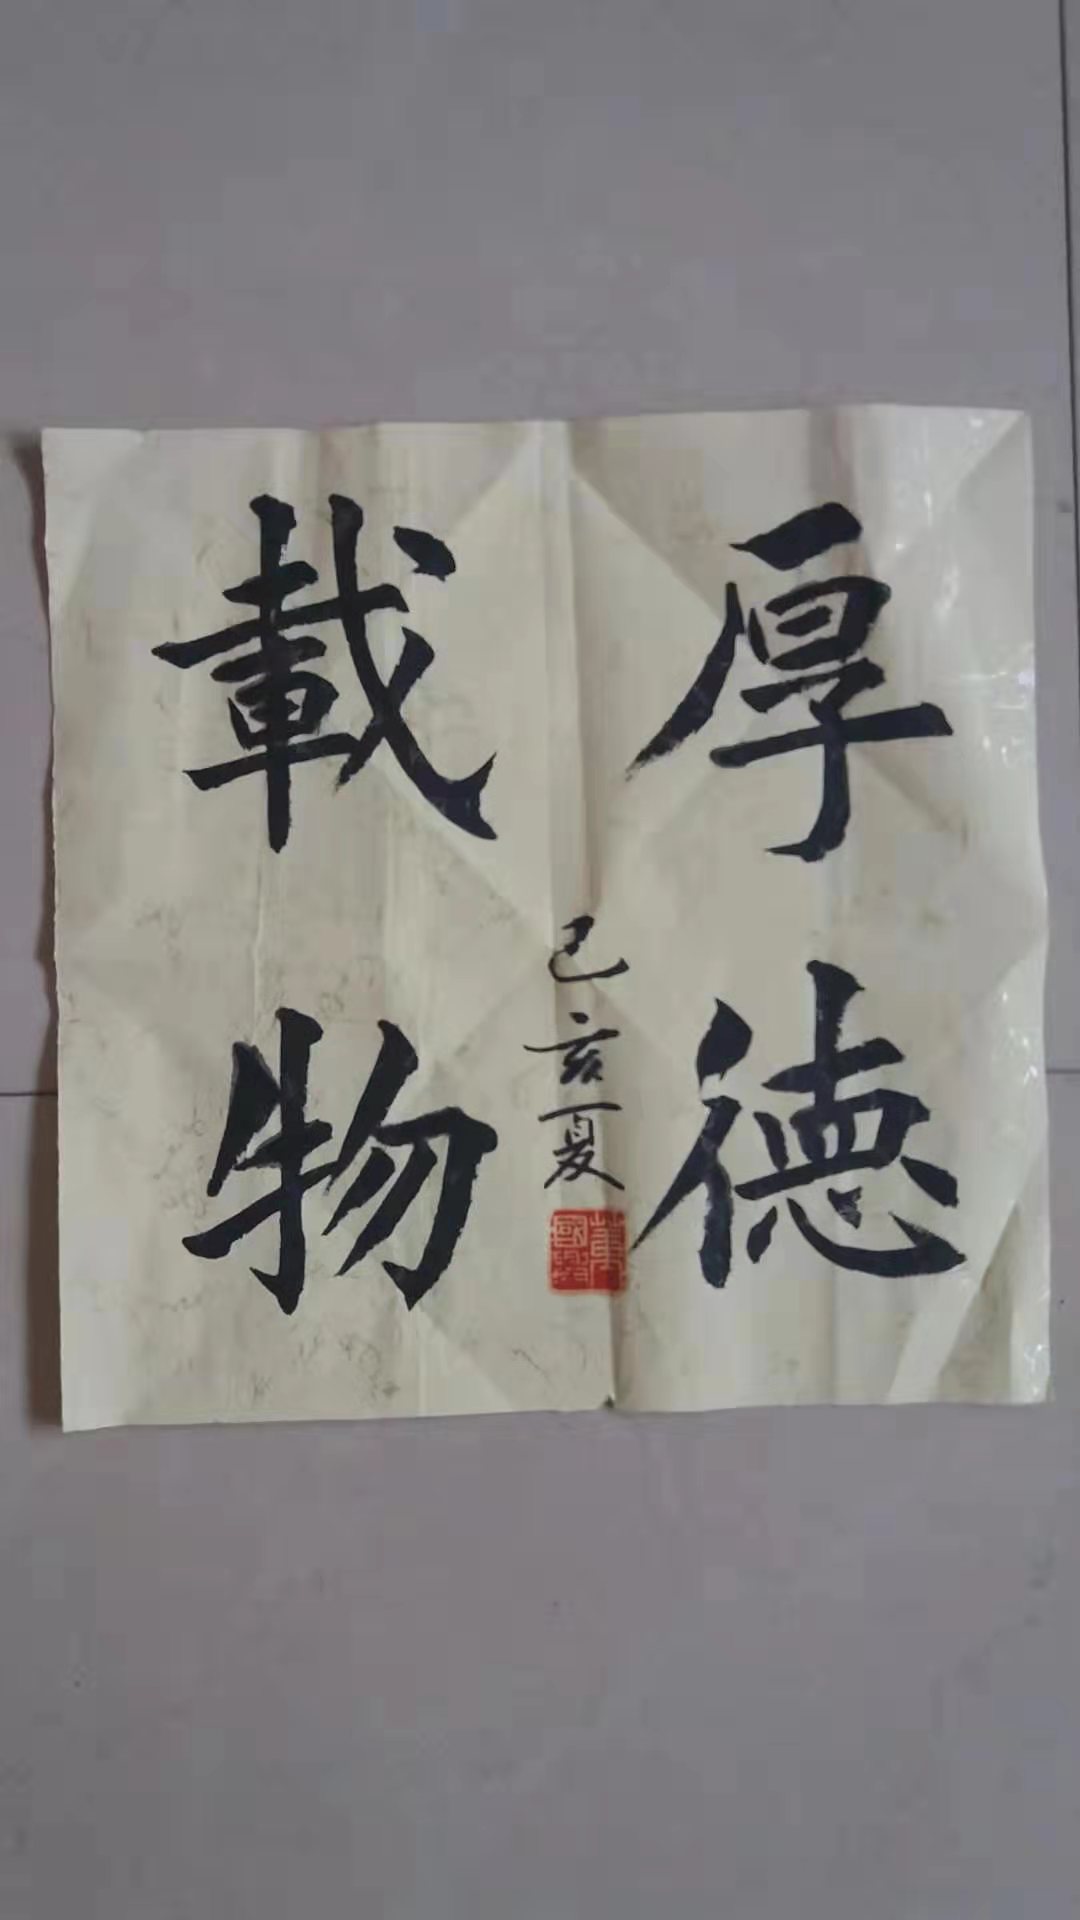 厚德
載物
己亥夏